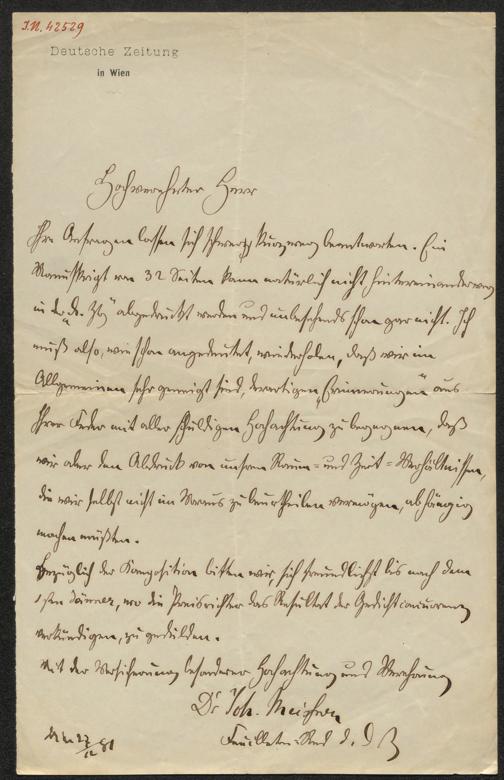 I.N. 42529
Deutsche Zeitung
in Wien
Hochverehrter Herr
Ihre Anfragen lassen sich schwer kurzweg beantworten. Ein
Manuskript von 32 Seiten kann natürlich nicht hintereinanderweg
in der „D. Ztg“ abgedruckt werden und unbesehends schon gar nicht. Ich
muß also, wie schon angedeutet, wiederholen, daß wir im
Allgemeinen sehr geneigt sind, derartigen „Erinnerungen“ aus
Ihrer Feder mit aller schuldigen Hochachtung zu begegnen, daß
wir aber den Abdruck von unseren Raum- und Zeit-Verhältnissen,
die wir selbst nicht im Voraus zu beurtheilen vermögen, abhängig
machen müßten.
Bezüglich der Komposition bitten wir, sich freundlichst bis nach dem
1sten Jänner, wo die Preisrichter das Resultat der Gedichtconcurrenz
verkündigen, zu gedulden.
Mit der Versicherung besonderer Hochachtung und Verehrung
Dr Joh. Meißner
Feuilleton-Red d. D Z
27/12 81